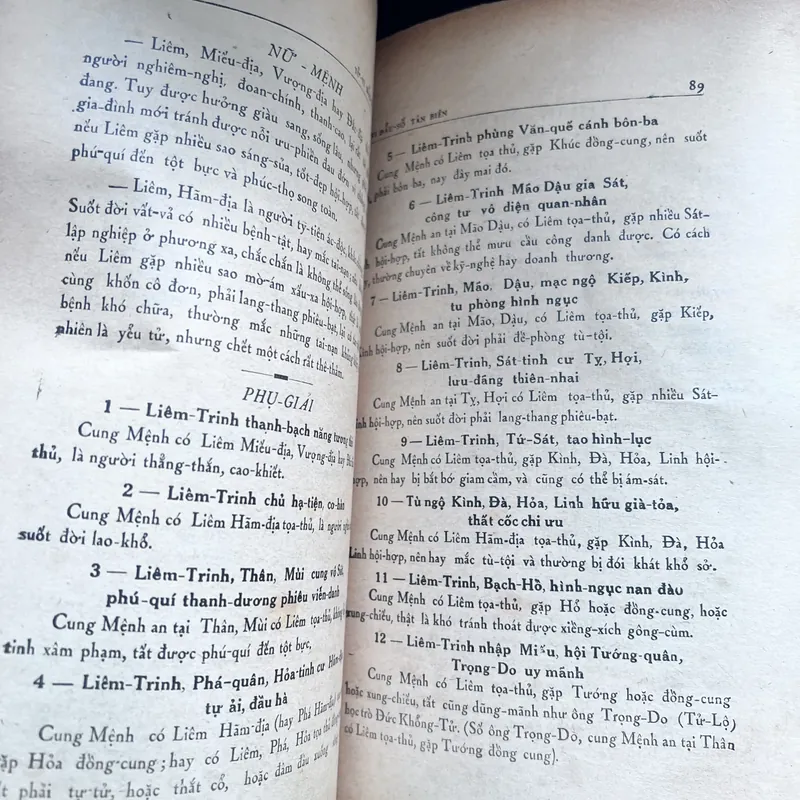 NỮ - MỆNH
— Liêm, Miếu-địa, Vượng-địa hay
người nghiêm-nghị, đoan-chính, thanh-cao,
đang. Tuy được hưởng giàu sang, sống lâu,
gia-đình mới tránh được nỗi ưu-phiền đau đớn
nếu Liêm gặp nhiều sao sáng-sủa, tốt-đẹp hội-hợp,
phú-quí đến tột bực và phúc-thọ song toàn.
— Liêm, Hãm-địa là người ty-tiện ác-độc,
Suốt đời vất-vả có nhiều bệnh-tật, hay mắc tai-nạn
lập nghiệp ở phương xa, chắc chắn là không thể sống
nếu Liêm gặp nhiều sao mờ-ám xấu-xa hội-hợp,
cùng khốn cô đơn, phải lang-thang phiêu-bạt,
bệnh khó chữa, thường mắc những tai-nạn
nhiên là yểu tử, nhưng chết một cách rất thê-thảm.
PHỤ-GIẢI
1 — Liêm-Trinh thạnh-bạch năng tương
Cung Mệnh có Liêm Miếu-địa, Vượng-địa hay
thủ, là người thẳng-thắn, cao-khiết.
2 — Liêm-Trinh chủ hạ-tiện,
Cung Mệnh có Liêm Hãm-địa tọa-thủ, là người
suốt đời lao-khổ.
3 — Liêm-Trinh, Thân, Mùi cung vô Sát,
phú-quí thanh-dương phiêu viễn-danh
Cung Mệnh an tại Thân, Mùi có Liêm tọa-thủ, không
tinh xâm phạm, tất được phú-quí đến tột bực,
4 — Liêm-Trinh, Phá-quân, Hỏa-tinh cư
tự ải, đầu hà
Cung Mệnh có Liêm Hãm-địa (hay Phá Hãm-địa)
gặp Hỏa đồng-cung; hay có Liêm, Phá, Hỏa tọa thủ
phải tự-tử, hoặc thắt cổ, hoặc đâm đầu xuống
89
ĐẨU-SỐ TÂN BIÊN
5 — Liêm-Trinh phùng Văn-quế cánh bôn-ba
Cung Mệnh có Liêm tọa thủ, gặp Khúc đồng-cung, nên suốt
phải bôn ba, nay đây mai đó.
6 — Liêm-Trinh Mão Dậu gia Sát,
công tư vô diện quan-nhân
Cung Mệnh an tại Mão Dậu, có Liêm tọa-thủ, gặp nhiều Sát-
hội-hợp, tất không thể mưu cầu công danh được. Có cách
thường chuyên về kỹ-nghệ hay doanh thương.
7 — Liêm-Trinh, Mão, Dậu, mạc ngộ Kiếp, Kình,
tu phòng hình ngục
Cung Mệnh an tại Mão, Dậu, có Liêm tọa-thủ, gặp Kiếp,
Kình hội-hợp, nên suốt đời phải đề-phòng tù-tội.
8 — Liêm-Trinh, Sát-tinh cư Tỵ, Hợi,
lưu-đãng thiên-nhai
Cung Mệnh an tại Tỵ, Hợi có Liêm tọa-thủ, gặp nhiều Sát-
tinh hội-hợp, nên suốt đời phải lang-thang phiêu-bạt.
9 — Liêm-Trinh, Tứ-Sát, tao hình-lục
Cung Mệnh có Liêm tọa-thủ, gặp Kình, Đà, Hỏa, Linh hội-
hợp, nên hay bị bắt bớ giam cầm, và cũng có thể bị ám-sát.
10 — Tù ngộ Kình, Đà, Hỏa, Linh hữu già-tỏa,
thất cốc chi ưu
Cung Mệnh có Liêm Hãm-địa tọa-thủ, gặp Kình, Đà, Hỏa
Linh hội-hợp, nên hay mắc tù-tội và thường bị đói khát khổ sở.
11 — Liêm-Trinh, Bạch-Hổ, hình-ngục nan đào
Cung Mệnh có Liêm tọa-thủ, gặp Hổ hoặc đồng-cung, hoặc
xung-chiếu, thật là khó tránh thoát được xiềng-xích gông-cùm.
12 — Liêm-Trinh nhập Miếu, hội Tướng-quân,
Trọng-Do uy mãnh
Cung Mệnh có Liêm tọa-thủ, gặp Tướng hoặc đồng-cung
hoặc xung-chiếu, tất cũng dũng-mãnh như ông Trọng-Do (Tử-Lộ)
học trò Đức Khổng-Tử. (Số ông Trọng-Do, cung Mệnh an tại Thân
có Liêm tọa-thủ, gặp Tướng đồng cung).